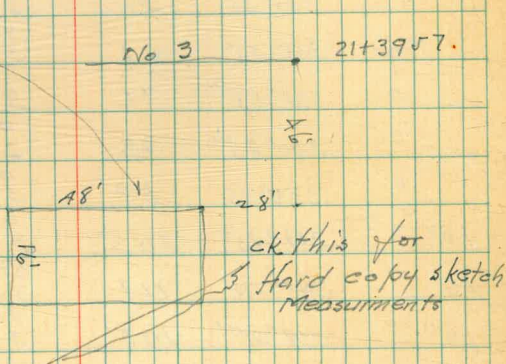 No 3 21+3957.
48' 28'
ck this for
Hard copy sketch
Measurments